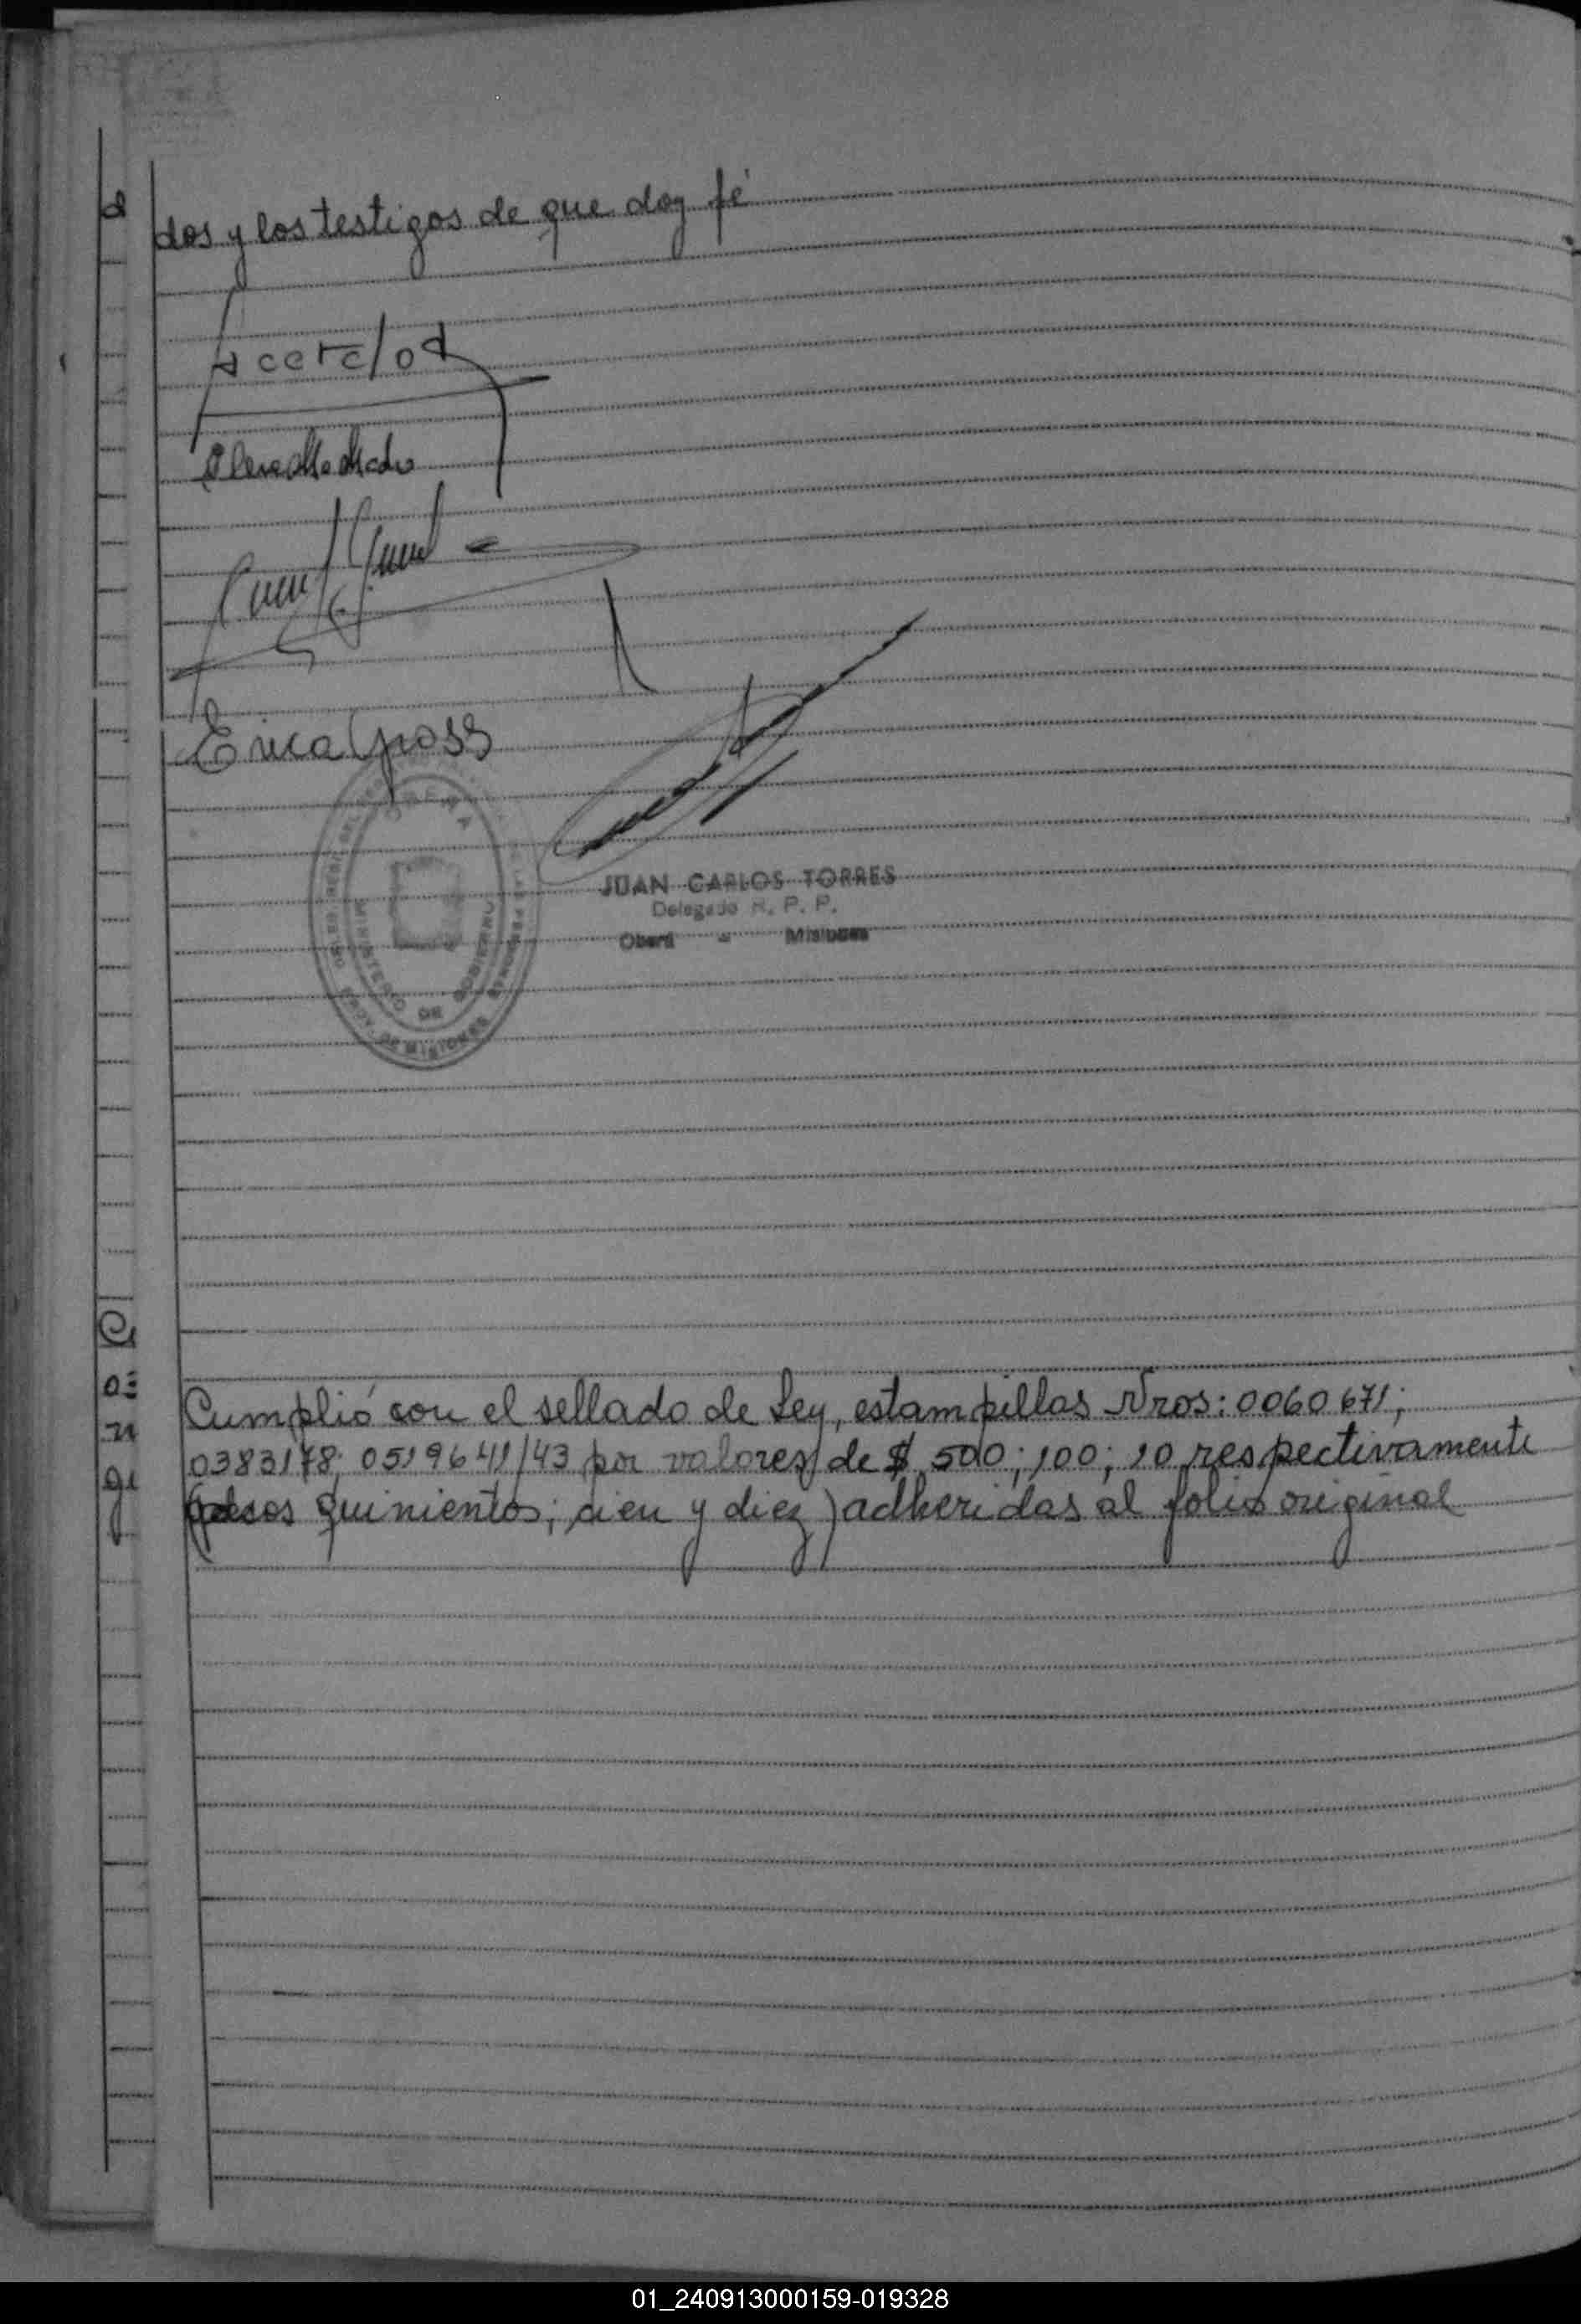 dos y los testigos de que doy fé
Erica Gross
OBERA
MINISTERIO DE GOBIERNO
PROV. DE MISIONES
JUAN CARLOS TORRES
Delegado R. P. P.
Oberá - Misiones
Cumplió con el sellado de Ley, estampillas Nros: 0060671;
0383178; 0519641/43 por valores de $ 500; 100; 10 respectivamente
(pesos quinientos; cien y diez) adheridas al folio original
01_240913000159-019328